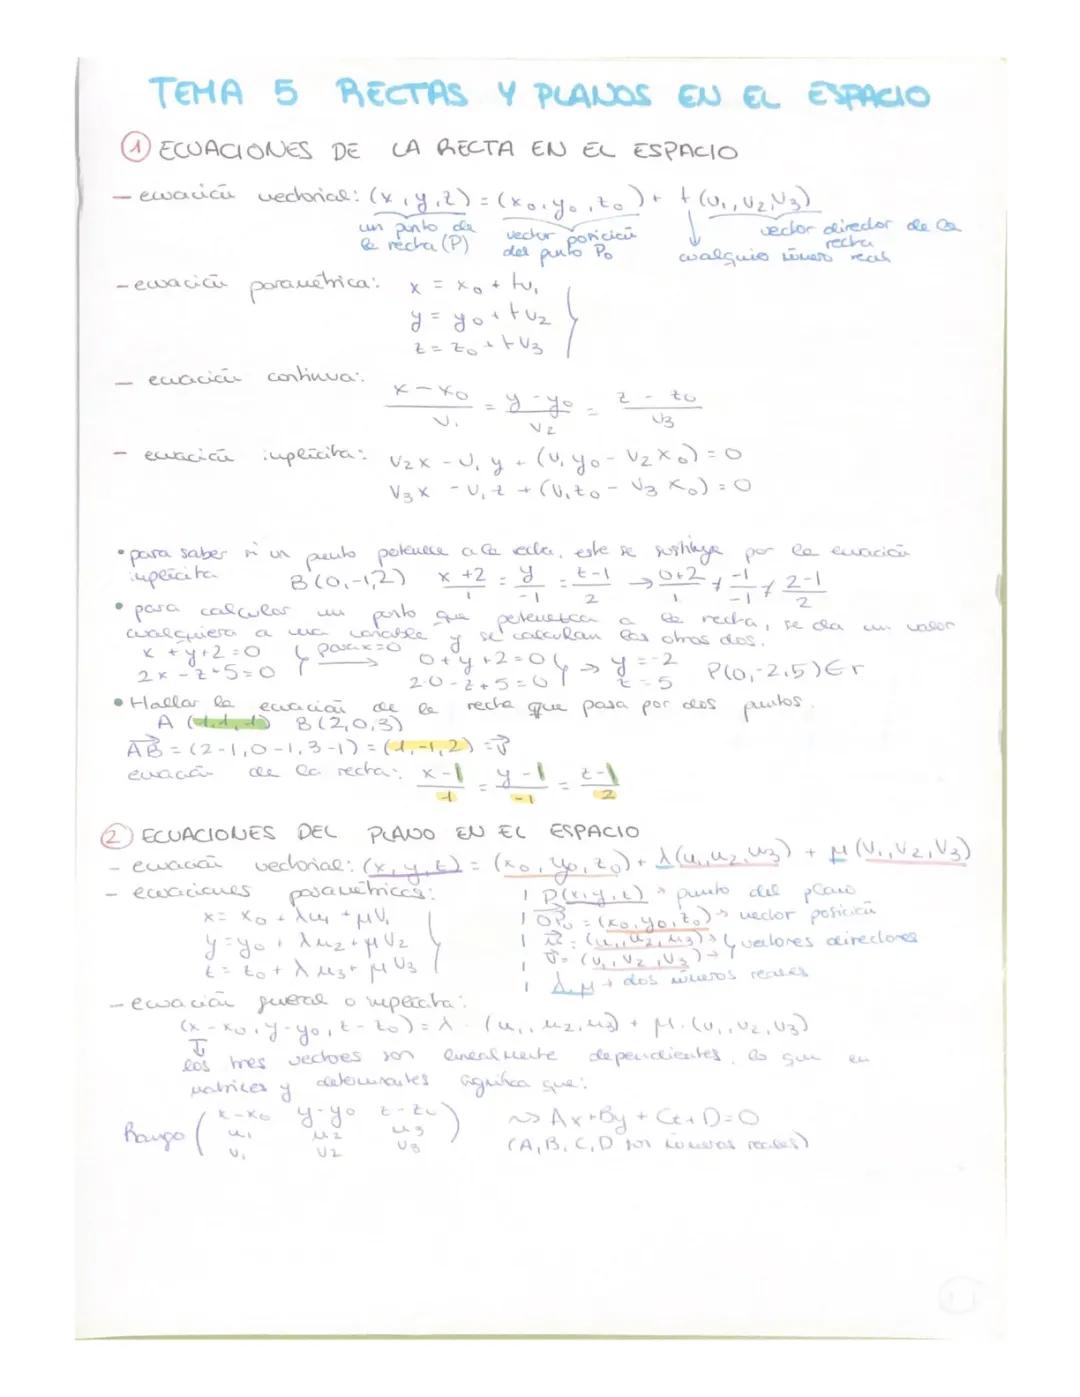 TEMA 5 RECTAS Y PLANOS EN EL ESPACIO
① ECUACIONES DE LA RECTA EN EL ESPACIO
- ecuación vectorial: (x,y,z) = (x₀,y₀,z₀) + t(v₁,v₂,v₃)
un punto de la recha (P)
vector posición del punto P₀
cualquier número real
vector director de la recta
- ecuación paramétrica: x = x₀ + tv₁
y = y₀ + tv₂
z = z₀ + tv₃
- ecuación continua: (x - x₀)/v₁ = (y - y₀)/v₂ = (z - z₀)/v₃
- ecuación implícita: v₂x - v₁y + (v₁y₀ - v₂x₀) = 0
v₃x - v₁z + (v₁z₀ - v₃x₀) = 0
• para saber si un punto pertenece a la recta, este se sustituye por la ecuación
implícita B(0,-1,2) (x+2)/1 = y/-1 = (z-1)/2 → (0+2)/1 ≠ -1/-1 ≠ (2-1)/2
• para calcular un punto que pertenezca a la recta, se da un valor
cualquiera a una variable y se calculan las otros dos.
x + y + 2 = 0 } para x=0 → 0 + y + 2 = 0 } → y = -2 P(0,-2,5) ∈ r
2x - z + 5 = 0 2·0 - z + 5 = 0 z = 5
• Hallar la ecuación de la recta que pasa por dos puntos.
A (1,1,1) B(2,0,3)
AB = (2-1,0-1,3-1) = (1,-1,2) = v
ecuación de la recta: (x-1)/1 = (y-1)/-1 = (z-1)/2
② ECUACIONES DEL PLANO EN EL ESPACIO
- ecuación vectorial: (x,y,z) = (x₀,y₀,z₀) + λ(u₁,u₂,u₃) + μ(v₁,v₂,v₃)
- ecuaciones paramétricas:
x = x₀ + λu₁ + μv₁
y = y₀ + λu₂ + μv₂
z = z₀ + λu₃ + μv₃
P(x,y,z) → punto del plano
OP₀ = (x₀,y₀,z₀) → vector posición
u = (u₁,u₂,u₃) → } vectores directores
v = (v₁,v₂,v₃) →
λ,μ → dos números reales
- ecuación general o implícita:
(x - x₀, y - y₀, z - z₀) = λ · (u₁,u₂,u₃) + μ · (v₁,v₂,v₃)
los tres vectores son linealmente dependientes, lo que en
matrices y determinantes significa que:
Rango ( x-x₀ y-y₀ z-z₀ ) ⇝ Ax+By+Cz+D=0
u₁ u₂ u₃ (A,B,C,D son números reales)
v₁ v₂ v₃